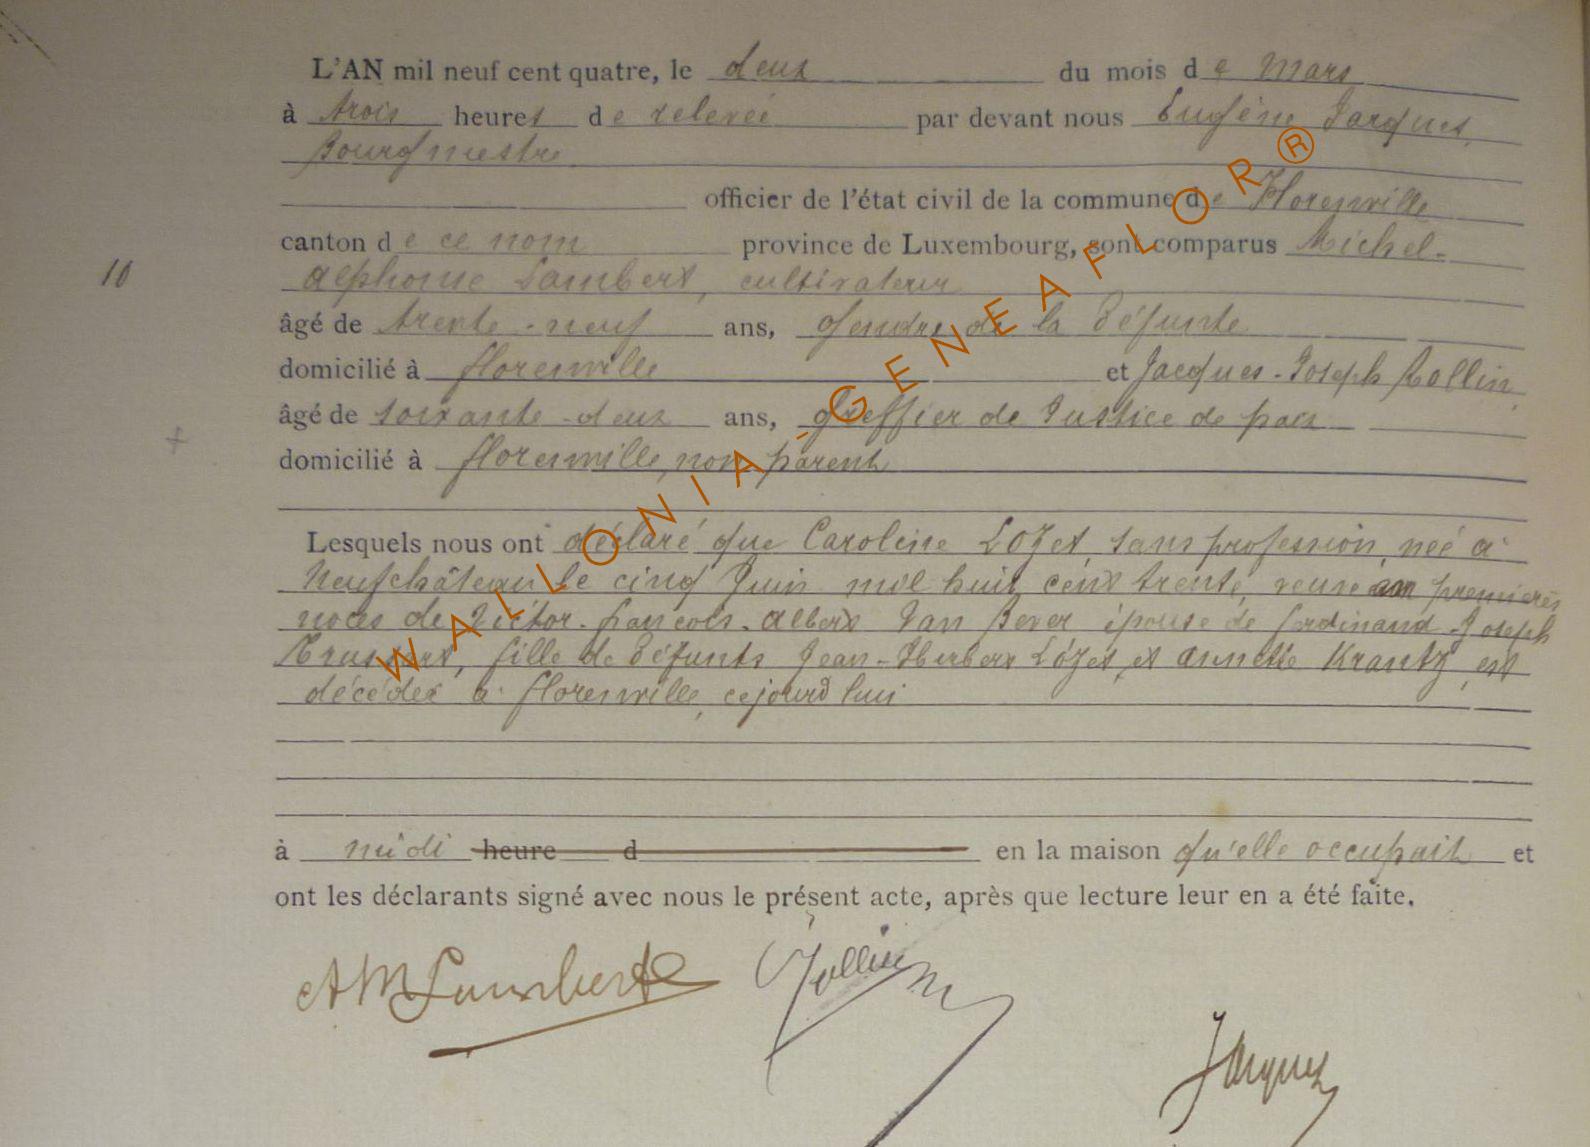 L'AN mil neuf cent quatre, le deux du mois de Mars
à trois heures de relevée par devant nous Eugène Jacques,
Bourgmestre
officier de l'état civil de la commune de Florenville
canton de ce nom province de Luxembourg, sont comparus Michel-
10
alphonse Lambert, cultivateur
âgé de trente-neuf ans, gendre de la défunte
domicilié à florenville et Jacques-Joseph Rollin,
âgé de soixante-deux ans, greffier de Justice de paix
domicilié à florenville, non parent
Lesquels nous ont déclaré que Caroline LOZet, sans profession, née à
Neufchâteau le cinq Juin mil huit cent trente, veuve en premières
noces de Victor-françois-albert Van Bever épouse de ferdinand-Joseph
fille de défunts Jean-Hubert LOZet et annette Krantz, est
décédée à florenville, cejourd'hui
à midi heure d en la maison qu'elle occupait et
ont les déclarants signé avec nous le présent acte, après que lecture leur en a été faite.
AMLambert
JRollin
Jacques
WALLONIA-GENEAFLOR®